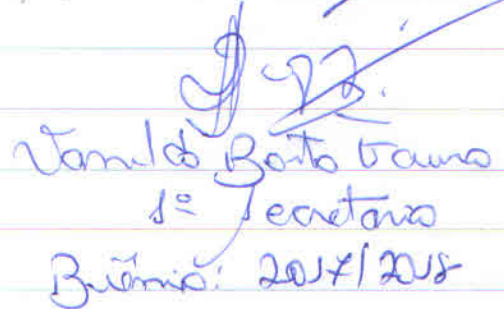 Vanildo Bortotrauro
1º Secretario
Biênio: 2017/2018